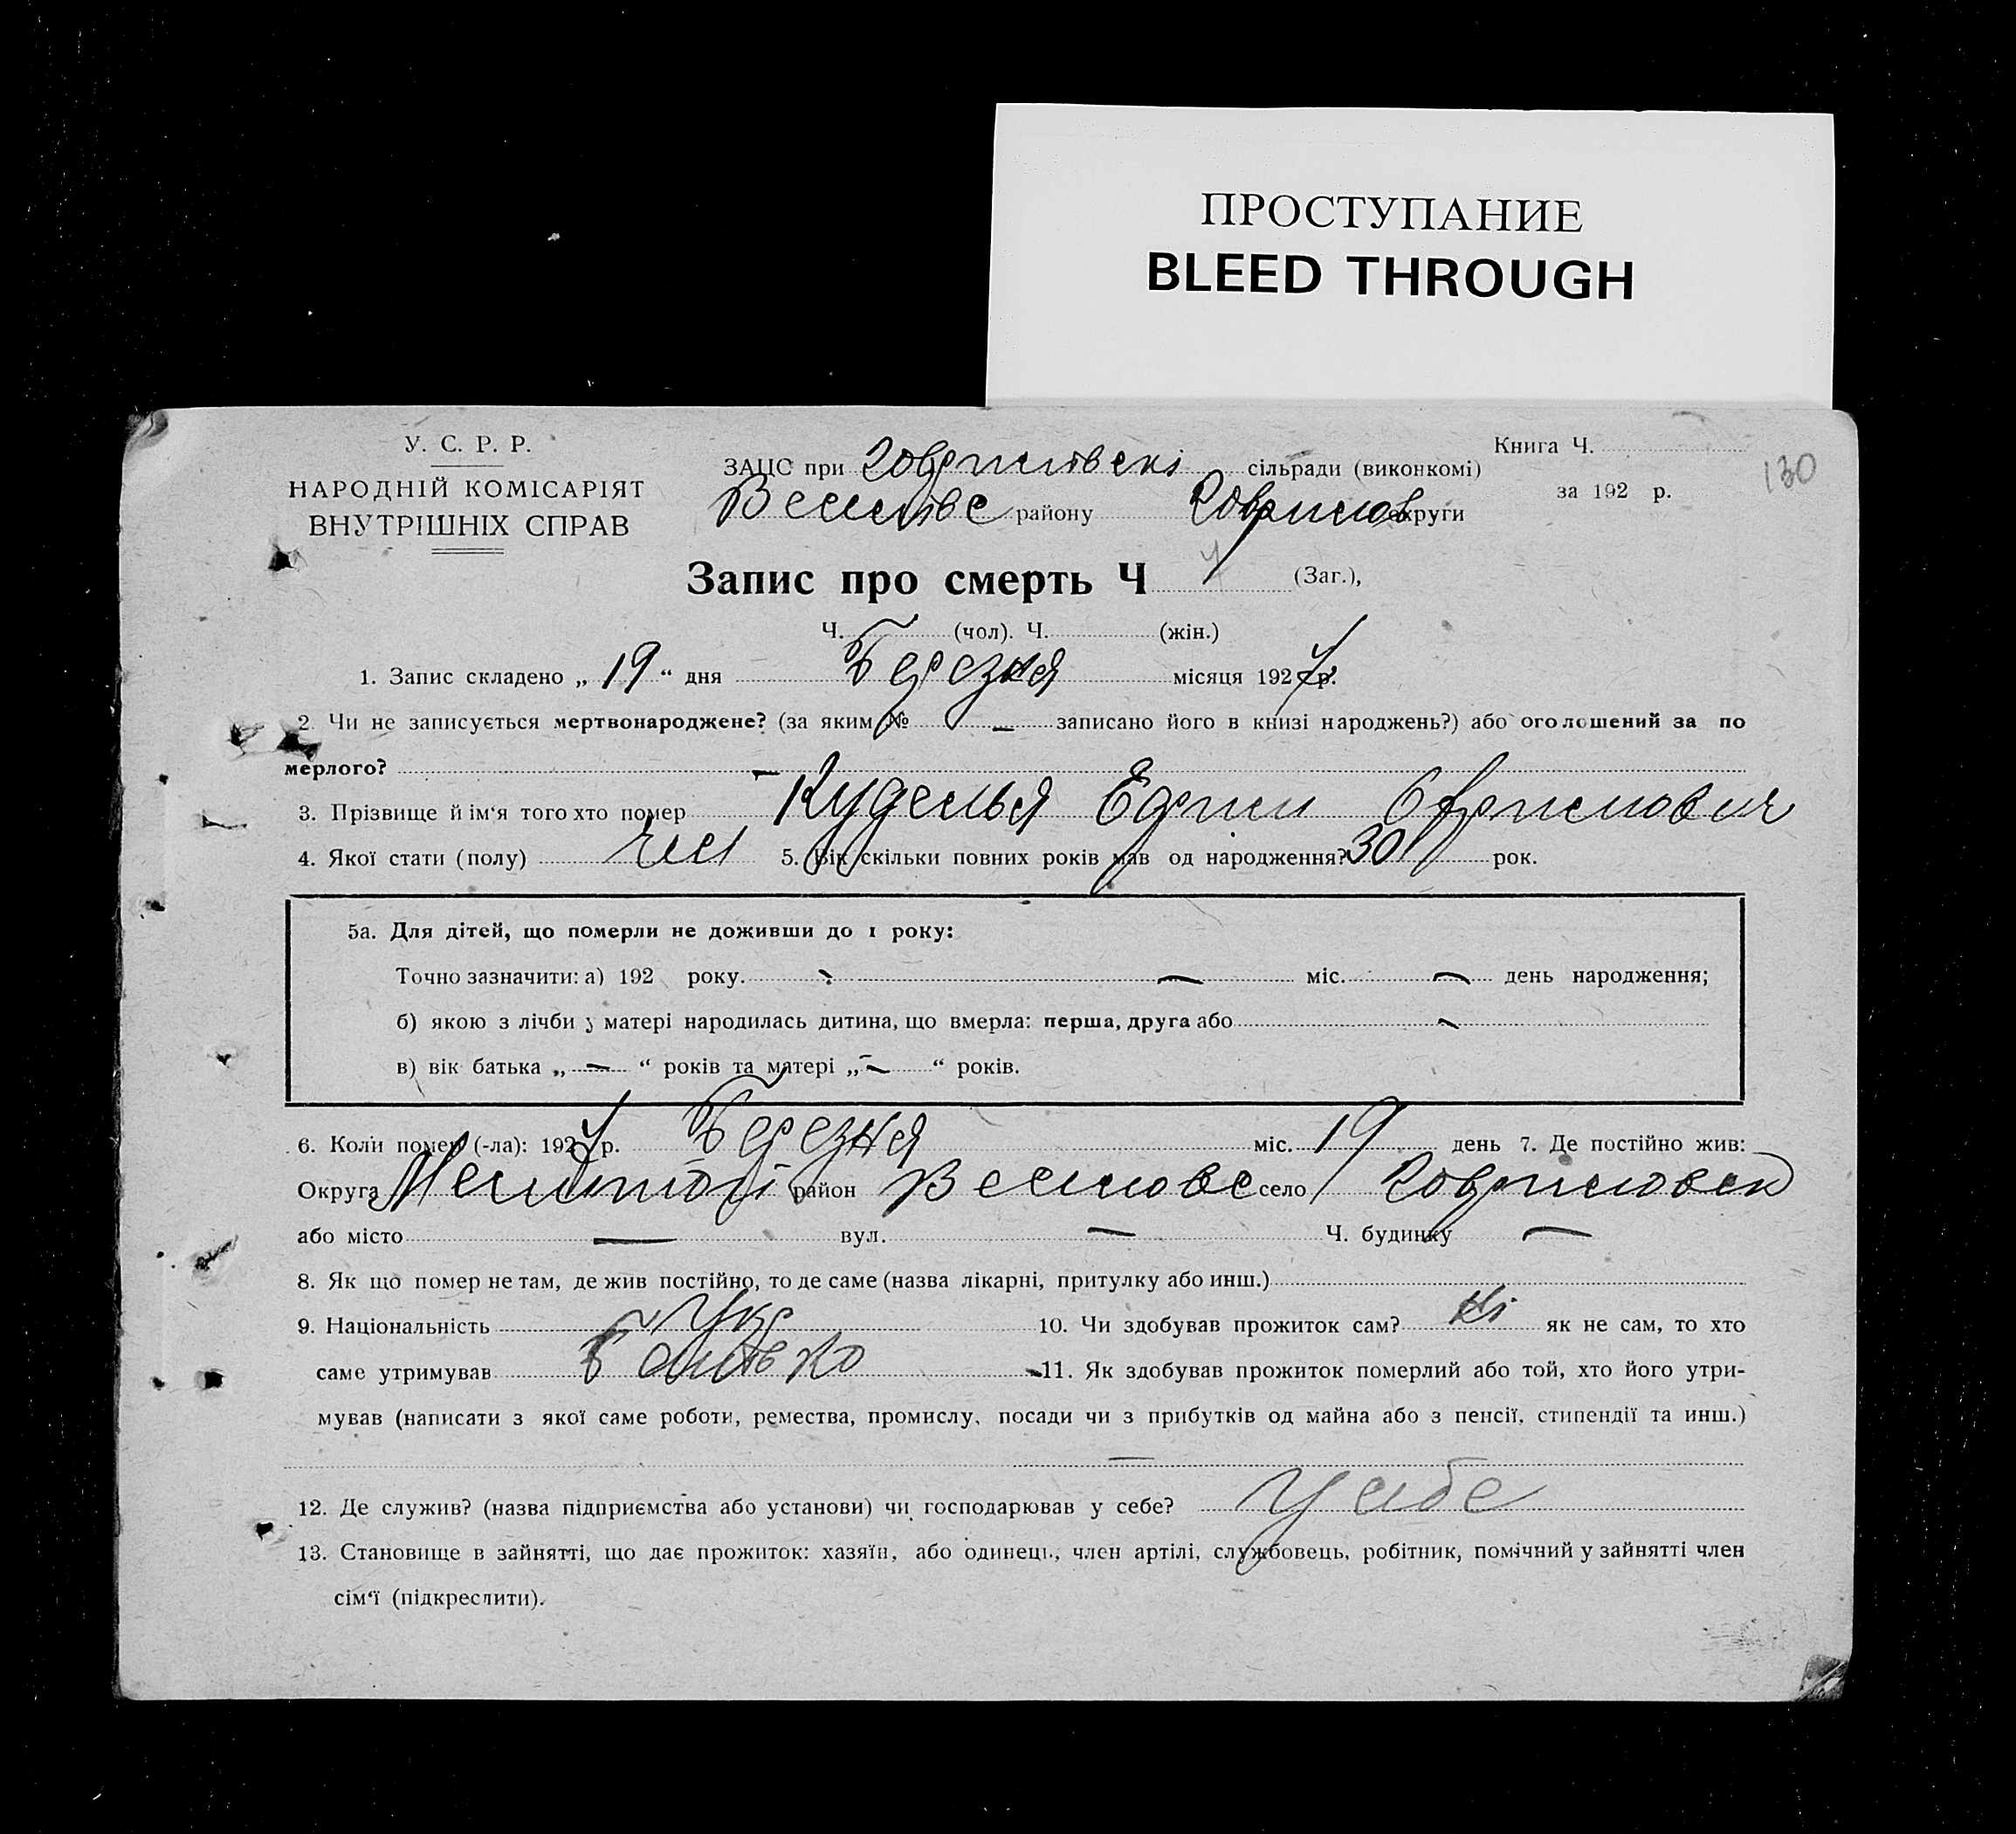 ПРОСТУПАНИЕ
BLEED THROUGH
У. С. Р. Р.
НАРОДНІЙ КОМІСАРІЯТ
ВНУТРІШНІХ СПРАВ
ЗАЦС при сільради (виконкомі)
району округи
Книга Ч.
за 192 р.
130
Запис про смерть Ч (Заг.),
Ч. (чол). Ч. (жін.)
1. Запис складено „ 19 “ дня Березня місяця 1927 р.
2. Чи не записується мертвонароджене? (за яким № — записано його в книзі народжень?) або оголошений за по
мерлого? —
3. Прізвище й ім‘я того хто помер
4. Якої стати (полу) 5. Вік скільки повних років мав од народження? 30 рок.
5а. Для дітей, що померли не доживши до 1 року:
Точно зазначити: а) 192 року. — — міс. — день народження;
б) якою з лічби у матері народилась дитина, що вмерла: перша, друга або —
в) вік батька „ — “ років та матері „ — “ років.
6. Коли помер (-ла): 1927 р. Березня міс. 19 день 7. Де постійно жив:
Округа район село
або місто — вул. — Ч. будинку —
8. Як що помер не там, де жив постійно, то де саме (назва лікарні, притулку або инш.)
9. Національність Укр 10. Чи здобував прожиток сам? Ні як не сам, то хто
саме утримував Батько 11. Як здобував прожиток померлий або той, хто його утри-
мував (написати з якої саме роботи, ремества, промислу, посади чи з прибутків од майна або з пенсії, стипендії та инш.)
—
12. Де служив? (назва підприємства або установи) чи господарював у себе? У себе
13. Становище в зайнятті, що дає прожиток: хазяїн, або одинець, член артілі, службовець, робітник, помічний у зайнятті член
сім‘ї (підкреслити).